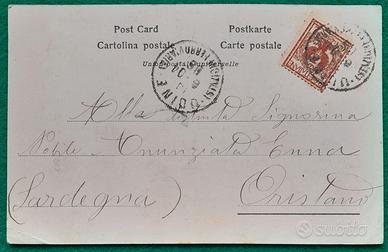 Post Card Postkarte
Cartolina postale Carte postale
Union postale universelle
UDINE
UDINE
Alla Signorina
Nobile Anunziata Enna
(Sardegna) Oristano
subito